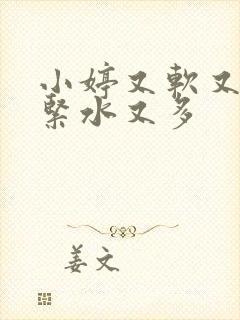 小婷又軟又
緊水又多
姜文